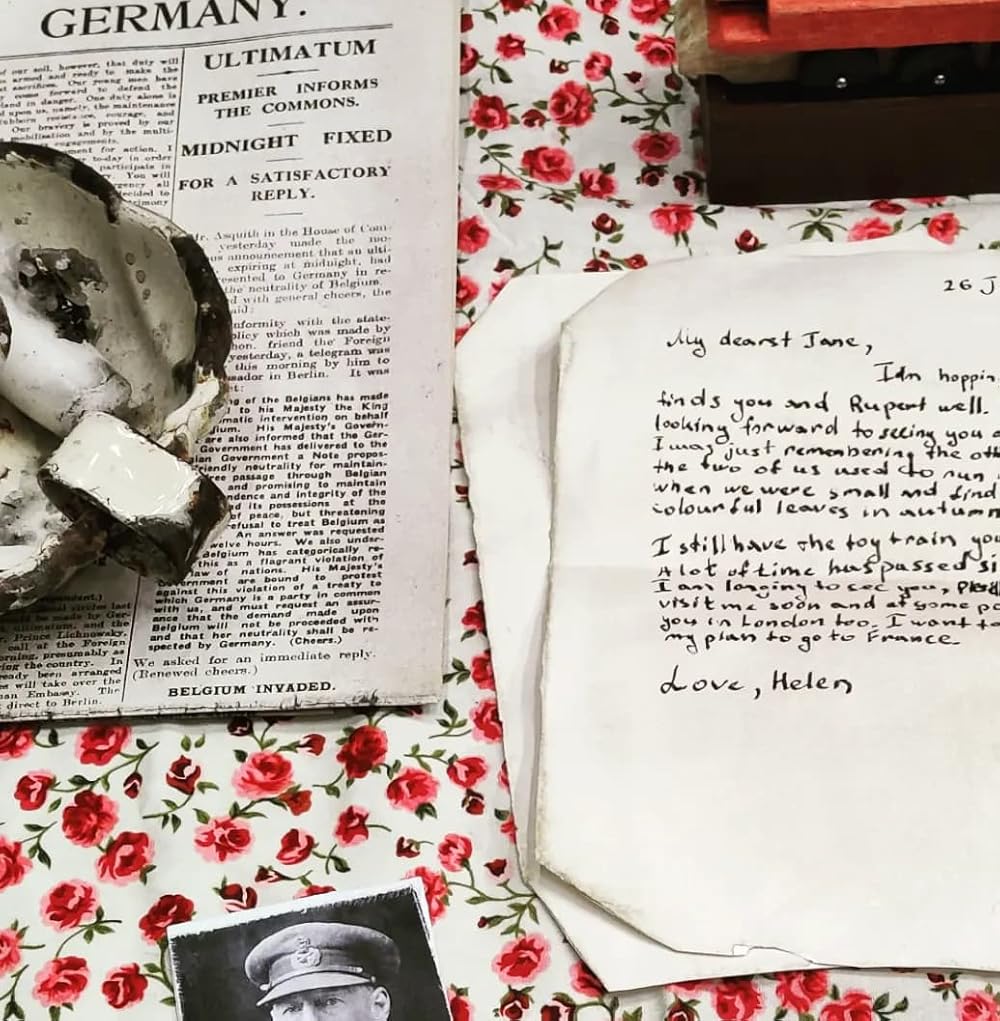 GERMANY.
of our soil, however, that duty will
armed and ready to make the
sacrifices. Our young men have
come forward to defend the
land in danger. One duty alone is
upon us, namely, the maintenance
resistance, courage, and
Our bravery is proved by our
mobilisation and by the multi-
engagements.
for action. I
to-day in order
participate in
You will
all
decided to
ULTIMATUM
PREMIER INFORMS
THE COMMONS.
MIDNIGHT FIXED
FOR A SATISFACTORY
REPLY.
Mr. Asquith in the House of Com-
yesterday made the mo-
announcement that an ulti-
expiring at midnight, had
presented to Germany in re-
the neutrality of Belgium.
with general cheers, the
said:
conformity with the state-
policy which was made by
hon. friend the Foreign
yesterday, a telegram was
this morning by him to
in Berlin. It was
of the Belgians has made
to his Majesty the King
intervention on behalf
His Majesty's Govern-
are also informed that the Ger-
Government has delivered to the
Government a Note propos-
friendly neutrality for maintain-
passage through Belgian
and promising to maintain
and integrity of the
its possessions at the
of peace, but threatening
refusal to treat Belgium as
An answer was requested
twelve hours. We also under-
Belgium has categorically re-
this as a flagrant violation of
law of nations. His Majesty's
Government are bound to protest
against this violation of a treaty to
which Germany is a party in common
with us, and must request an assur-
ance that the demand made upon
Belgium will not be proceeded with
and that her neutrality shall be re-
spected by Germany. (Cheers.)
We asked for an immediate reply.
(Renewed cheers.)
BELGIUM INVADED.
circles last
be made by Ger-
and the
Prince Lichnowsky,
call at the Foreign
morning, presumably as
the country. In
already been arranged
will take over the
Embassy. The
direct to Berlin.
26 J
My dearst Jane,
I'm hoppin
finds you and Rupert well.
looking forward to seeing you a
I was just remembering the oth
the two of us used to run
when we were small and find
colourful leaves in autumn
I still have the toy train you
A lot of time has passed si
I am longing to see you,
visit me soon and at some po
you in London too. I want to
my plan to go to France.
Love, Helen